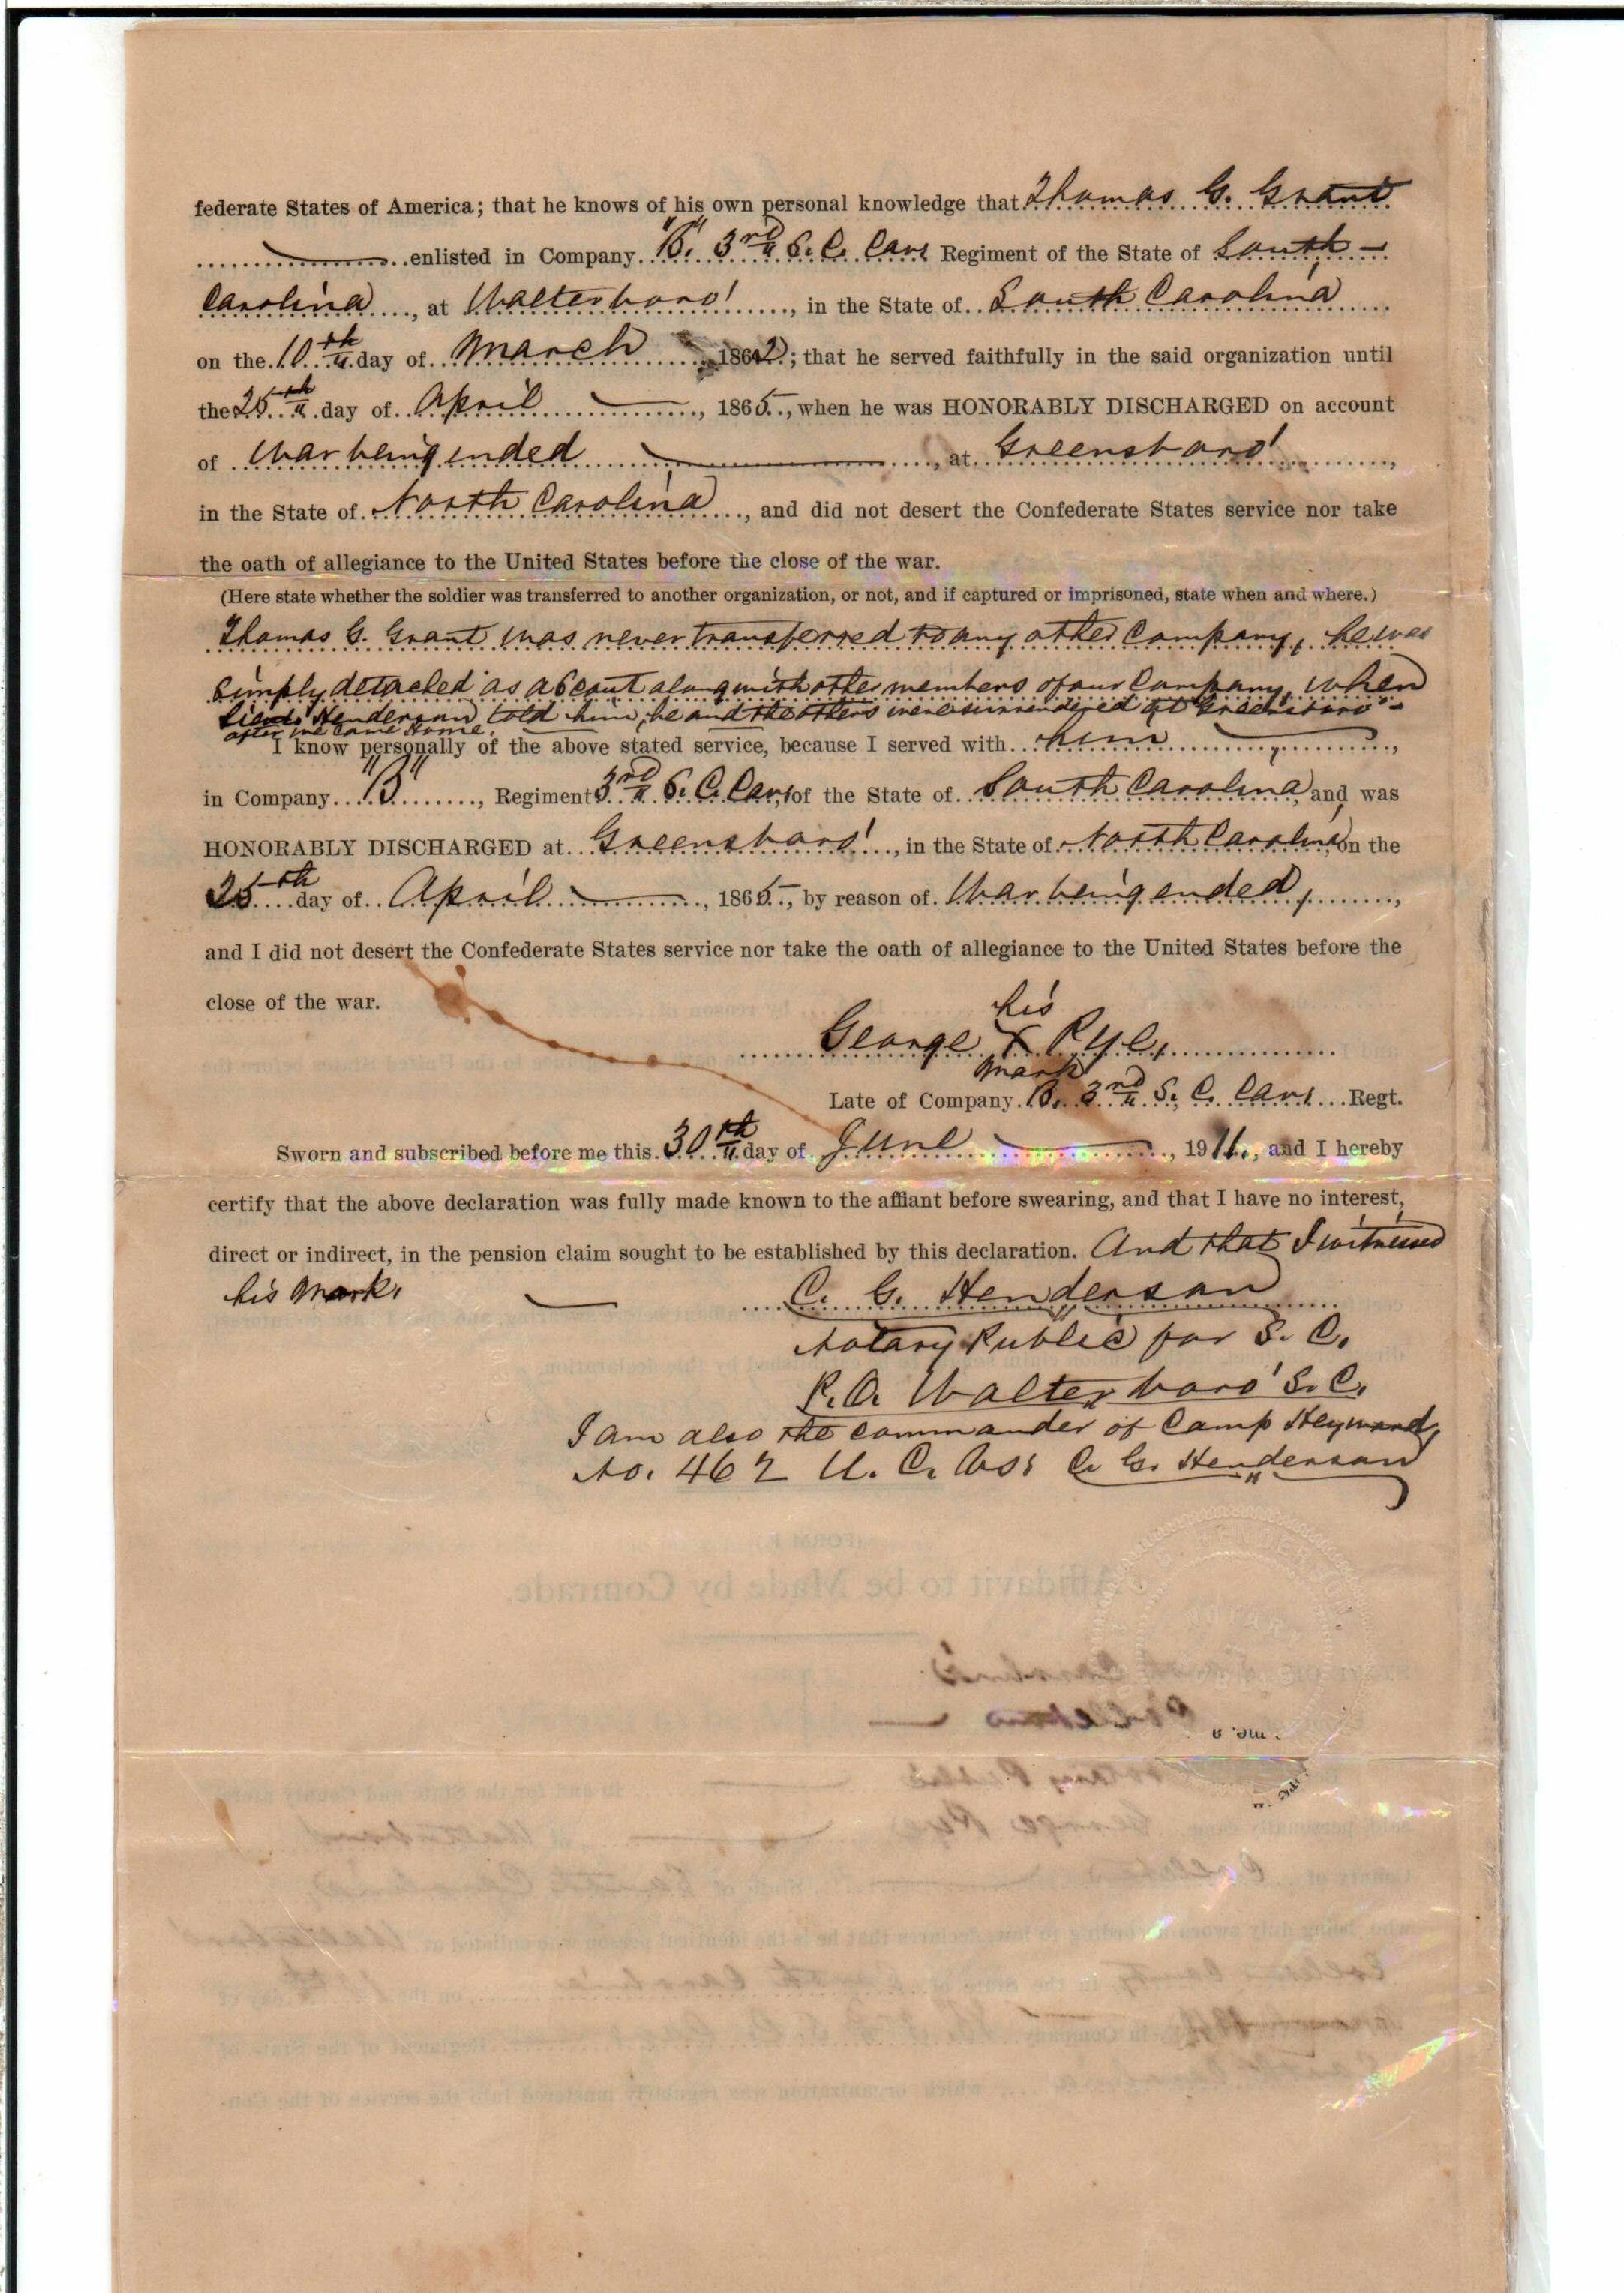 federate States of America; that he knows of his own personal knowledge that Thomas G. Grant
enlisted in Company "B." 3rd S. C. Cav. Regiment of the State of South
Carolina, at Walterboro', in the State of South Carolina
on the 10th day of March 1862; that he served faithfully in the said organization until
the 25th day of April, 1865, when he was HONORABLY DISCHARGED on account
of War being ended, at Greensboro',
in the State of North Carolina, and did not desert the Confederate States service nor take
the oath of allegiance to the United States before the close of the war.
(Here state whether the soldier was transferred to another organization, or not, and if captured or imprisoned, state when and where.)
Thomas G. Grant was never transferred to any other Company, he was
simply detached as a Scout along with other members of our Company, when
Lieut. Henderson told him, he and the others were surrendered at Greensboro'
after we came home.
I know personally of the above stated service, because I served with him,
in Company "B", Regiment 3rd S. C. Cav. of the State of South Carolina, and was
HONORABLY DISCHARGED at Greensboro', in the State of North Carolina, on the
25th day of April, 1865, by reason of War being ended,
and I did not desert the Confederate States service nor take the oath of allegiance to the United States before the
close of the war.
his
George X Rye,
mark
Late of Company B. 3rd S. C. Cav. Regt.
Sworn and subscribed before me this 30th day of June, 1911, and I hereby
certify that the above declaration was fully made known to the affiant before swearing, and that I have no interest,
direct or indirect, in the pension claim sought to be established by this declaration. And that I witnessed
his mark.
C. G. Henderson
Notary Public for S. C.
P. O. Walterboro' S. C.
I am also the commander of Camp Heyward,
No. 462 U. C. Vos C. G. Henderson